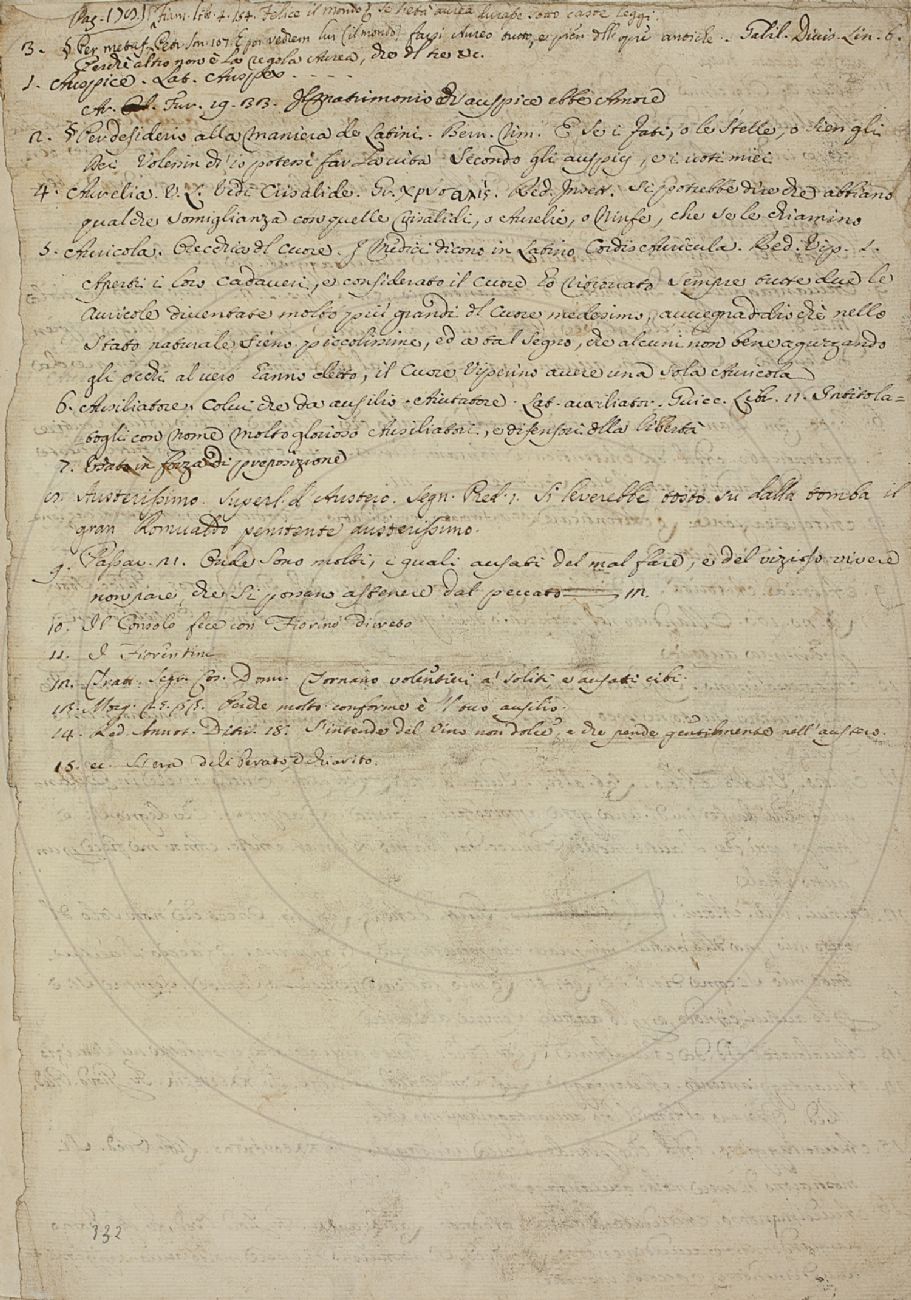 Pag. 1 Fiam. lib. 4. 154. Felice il mondo se l'età aurea durasse sotto caste leggi.
3. § Per metaf. Petr. Son. 107. E poi vedrem lui (il mondo) farsi Aureo tutto, e pien dell'opre antiche. Galil. Divis. Lin. 6.
Perchè altro non è la regola Aurea, che del tre &c.
1. Auspice. Lat. Auspex.
Ar. Fur. 19. 33. Il matrimonio ch'auspice ebbe Amore
2. § Per desiderio alla maniera de Latini. Bern. rim. E se i fati, o le stelle, o sien gli
Dei Volessin ch'io potessi far la vita Secondo gli auspicj, e i voti miei
4. Aurelia. V. L. Vedi Crisalide. Gr. χρυσαλλίς. Red. Insett. Si potrebbe dire che abbiano
qualche somiglianza con quelle Crisalidi, o Aurelie, o Ninfe, che se le chiamino
5. Auricola. Orecchia del cuore. I Medici dicono in Latino Cordis Auricula. Red. Vip. 1.
Aperti i loro cadaveri, e considerato il cuore ho ritrovato sempre tutte due le
auricole diventate molto più grandi del cuore medesimo, avvegnadiochè nello
stato naturale sieno piccolissime, ed a tal segno, che alcuni non bene aguzzando
gli occhi al vero hanno detto, il cuore Viperino avere una sola Auricola
6. Ausiliatore. Colui che dà ausilio. Aiutatore. Lat. auxiliator. Guicc. Libr. 11. Intitola=
togli con nome molto glorioso Ausiliatori, e difensori della libertà
7. Usato in forza di preposizione
8. Austerissimo. Superl. d'Austero. Segn. Pred. 1. Si leverebbe tosto su dalla tomba il
gran Romualdo penitente austerissimo.
9. Passav. 21. Onde sono molti, i quali ausati del mal fare, e del vizioso vivere
non pare, che si possano astenere dal peccato 12.
10. Il Consolo fece con Fiorino divieto
11. I Fiorentini
12. Tratt. Segr. Cos. Donn. Tornano volentieri a' soliti, e ausati cibi.
13. Morg. Laide molto conforme è 'l tuo ausilio.
14. Red. Annot. Ditir. 18. S'intende del vino non dolce, e che pende gentilmente nell'austero.
15. ec. Si era deliberato, e chiarito.
332